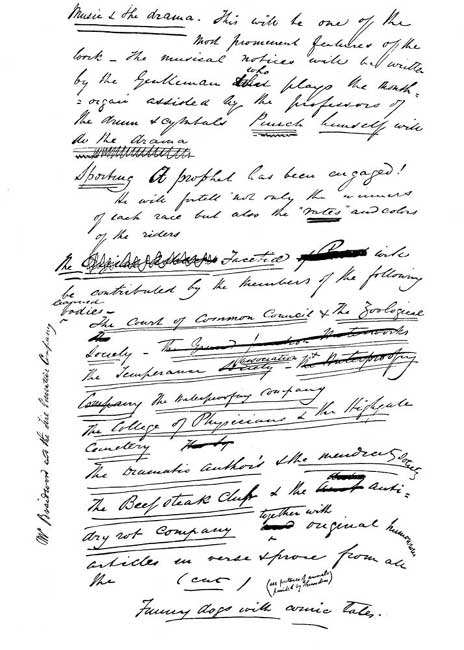 Music & the drama. This will be one of the
most prominent features of the
work – The musical notices will be written
by the Gentleman who plays the mouth-
-organ assisted by the professors of
the drum & cymbals Punch himself will
do the drama
Sporting A prophet has been engaged!
He will fortell not only the winners
of each race but also the "rates" and colors
of the riders
The Facetiæ will
be contributed by the members of the following
learned
bodies –
The Court of Common Council & The Zoological
Society – The
The Temperance Association – The Waterproofing
Company The Waterproofing company
The College of Physicians & the Highgate
Cemetery
The Dramatic Author's & the mendicity society
The Beefsteak Club & the anti-
dry rot company together with original humorous
articles in verse & prose from all
the (cut) (
Funny dogs with comic tales.